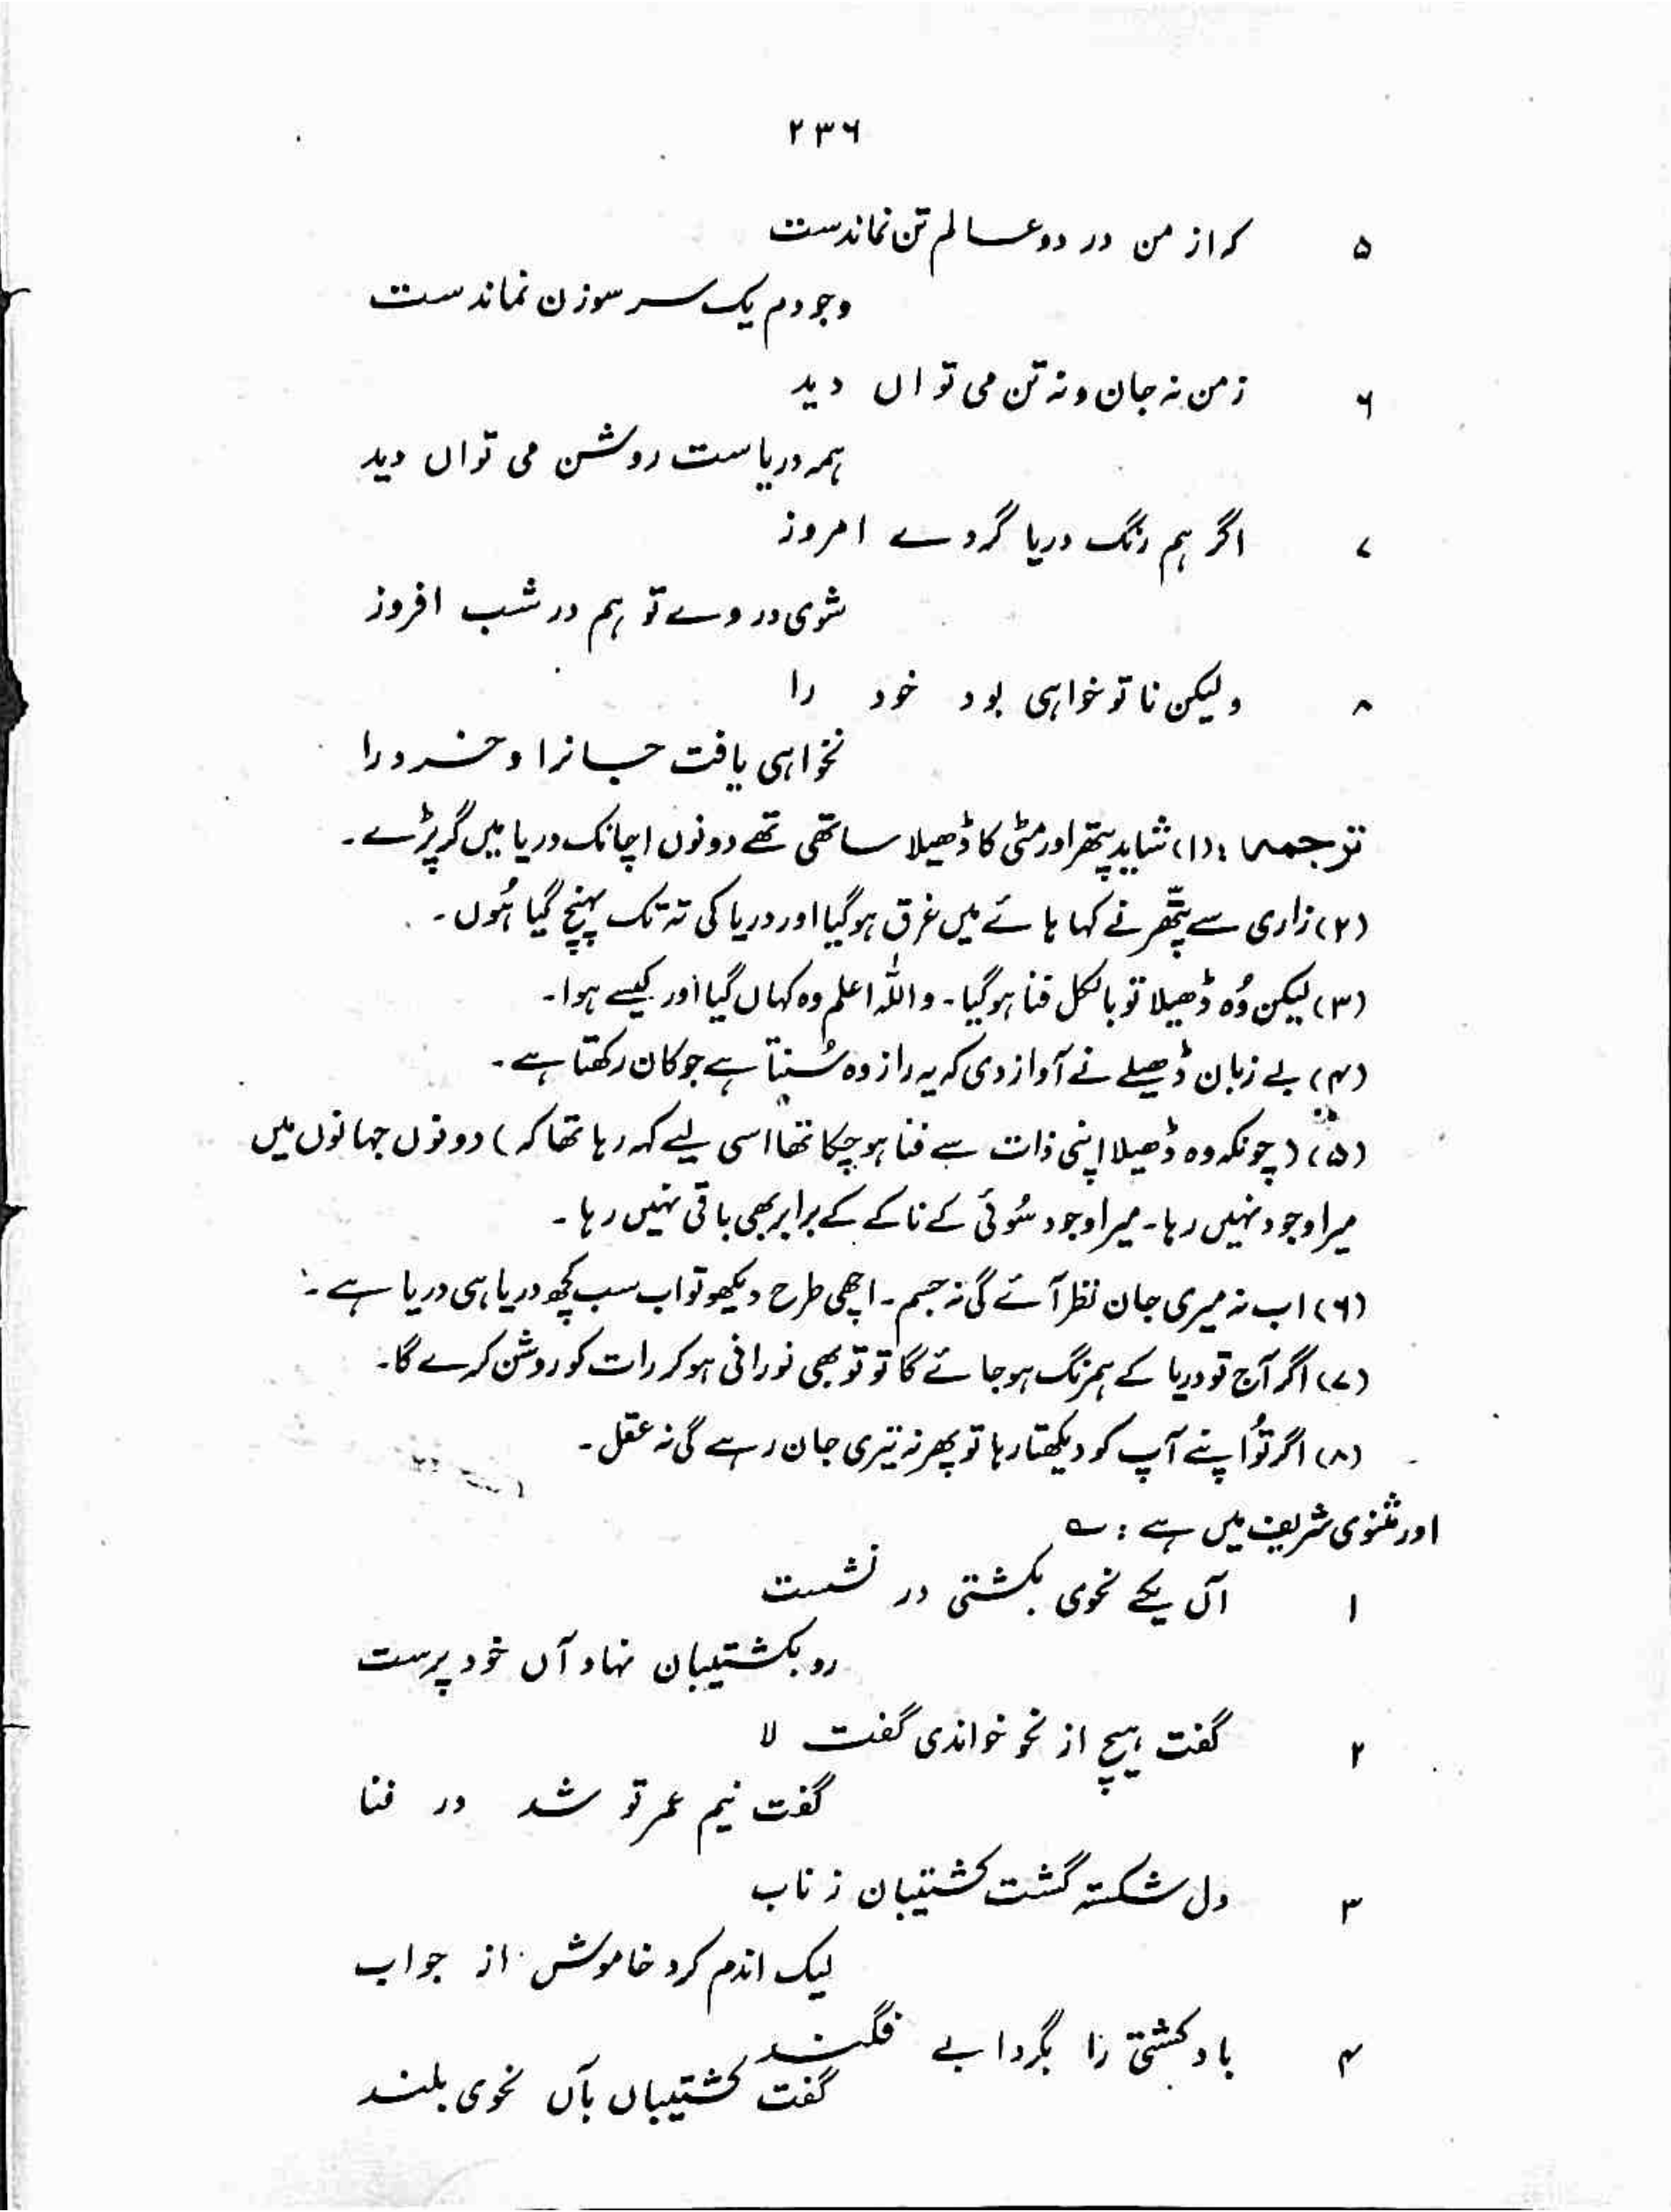 ۲۳۶
۵ کہ از من در دو عالم تن نماندست
وجودم یک سر سوزن نماندست
۶ زمن نہ جان و نہ تن می تواں دید
ہمہ دریاست روشن می تواں دید
۷ اگر ہم رنگ دریا گردے امروز
شوی در وے تو ہم در شب افروز
۸ ولیکن تا تو خواہی بود خود را
نخواہی یافت جانرا و خرد را
ترجمہ: (۱) شاید پتھر اور مٹی کا ڈھیلا ساتھی تھے دونوں اچانک دریا میں گر پڑے۔
(۲) زاری سے پتھّر نے کہا ہائے میں غرق ہوگیا اور دریا کی تہ تک پہنچ گیا ہُوں۔
(۳) لیکن وُہ ڈھیلا تو بالکل فنا ہوگیا۔ واللہ اعلم وہ کہاں گیا اور کیسے ہوا۔
(۴) بے زبان ڈھیلے نے آواز دی کہ یہ راز وہ سُنتا ہے جو کان رکھتا ہے۔
(۵) (چونکہ وہ ڈھیلا اپنی ذات سے فنا ہوچکا تھا اسی لیے کہہ رہا تھا کہ) دونوں جہانوں میں
میرا وجود نہیں رہا۔ میرا وجود سُوئی کے ناکے کے برابر بھی باقی نہیں رہا۔
(۶) اب نہ میری جان نظر آئے گی نہ جسم۔ اچھی طرح دیکھو تو اب سب کچھ دریا ہی دریا ہے۔
(۷) اگر آج تو دریا کے ہمرنگ ہوجائے گا تو تو بھی نورانی ہوکر رات کو روشن کرے گا۔
(۸) اگر تُو اپنے آپ کو دیکھتا رہا تو پھر نہ تیری جان رہے گی نہ عقل۔
اور مثنوی شریف میں ہے: ؎
۱ آں یکے نحوی بکشتی در نشست
رو بکشتیبان نہاد آں خود پرست
۲ گفت ہیچ از نحو خواندی گفت لا
گفت نیم عمر تو شد در فنا
۳ دل شکستہ گشت کشتیبان ز تاب
لیک اندم کرد خاموش از جواب
۴ باد کشتی را بگردابے فگند
گفت کشتیباں بآں نحوی بلند